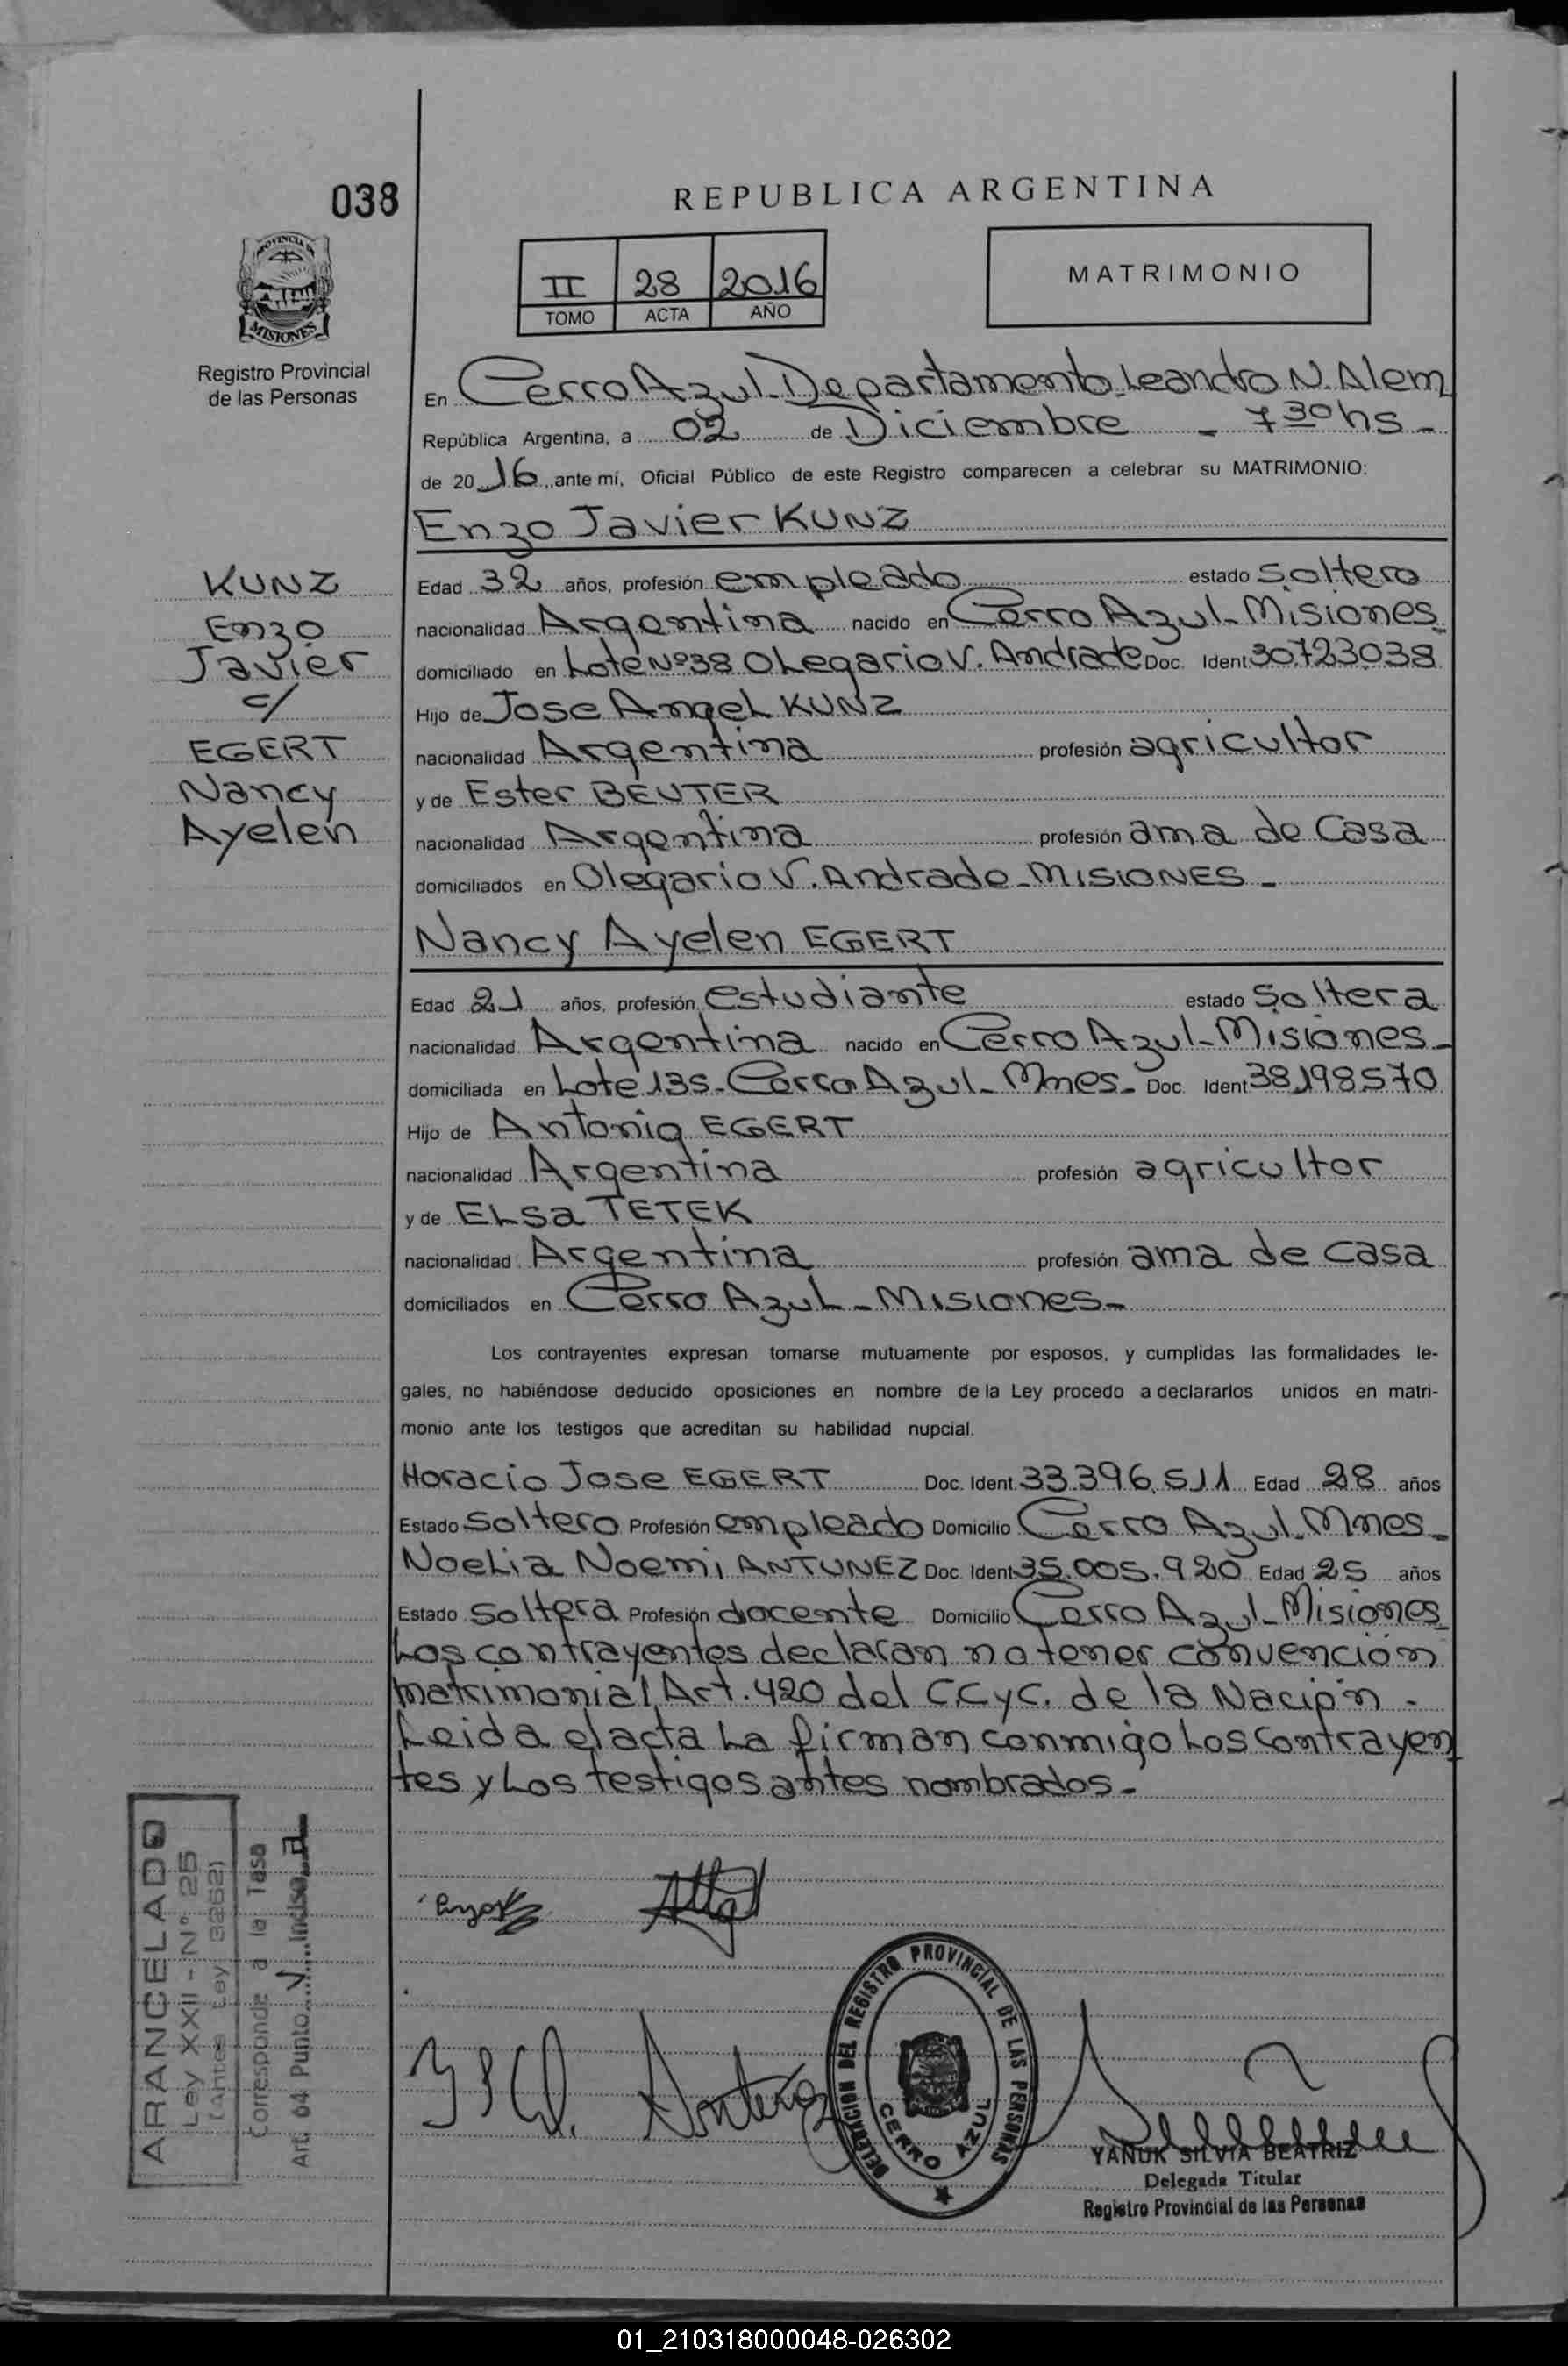 038
REPUBLICA ARGENTINA
PROVINCIA DE
MISIONES
Registro Provincial
de las Personas
II 28 2016
TOMO ACTA AÑO
MATRIMONIO
En Cerro Azul-Departamento Leandro N. Alem
República Argentina, a 02 de Diciembre - 7 30 hs -
de 2016, ante mí, Oficial Público de este Registro comparecen a celebrar su MATRIMONIO:
Enzo Javier KUNZ
KUNZ
Enzo
Javier
c/
EGERT
Nancy
Ayelen
Edad 32 años, profesión empleado estado soltero
nacionalidad Argentina nacido en Cerro Azul-Misiones
domiciliado en Lote Nº38 Olegario V. Andrade Doc. Ident 30723038
Hijo de Jose Angel KUNZ
nacionalidad Argentina profesión agricultor
y de Ester BEUTER
nacionalidad Argentina profesión ama de casa
domiciliados en Olegario V. Andrade-MISIONES-
Nancy Ayelen EGERT
Edad 21 años, profesión estudiante estado soltera
nacionalidad Argentina nacido en Cerro Azul-Misiones-
domiciliada en Lote 135-Cerro Azul-Mnes- Doc. Ident 38,198570
Hijo de Antonio EGERT
nacionalidad Argentina profesión agricultor
y de ELsa TETEK
nacionalidad Argentina profesión ama de casa
domiciliados en Cerro Azul-Misiones-
Los contrayentes expresan tomarse mutuamente por esposos, y cumplidas las formalidades le-
gales, no habiéndose deducido oposiciones en nombre de la Ley procedo a declararlos unidos en matri-
monio ante los testigos que acreditan su habilidad nupcial.
Horacio Jose EGERT Doc. Ident. 33.396.511 Edad 28 años
Estado soltero Profesión empleado Domicilio Cerro Azul-Mnes-
Noelia Noemi ANTUNEZ Doc. Ident 35.005.920 Edad 25 años
Estado soltera Profesión docente Domicilio Cerro Azul-Misiones
Los contrayentes declaran no tener convención
matrimonial Art. 420 del C.C y C. de la Nación-
Leida el acta la firman conmigo los contrayen
tes y los testigos antes nombrados-
ARANCELADO
Ley XXII - Nº 25
(Antes Ley 3262)
Corresponde a la Tasa
Art. 64 Punto V Inciso a
DELEGACION DEL REGISTRO PROVINCIAL DE LAS PERSONAS
CERRO AZUL
YAÑUK SILVIA BEATRIZ
Delegada Titular
Registro Provincial de las Personas
01_210318000048-026302